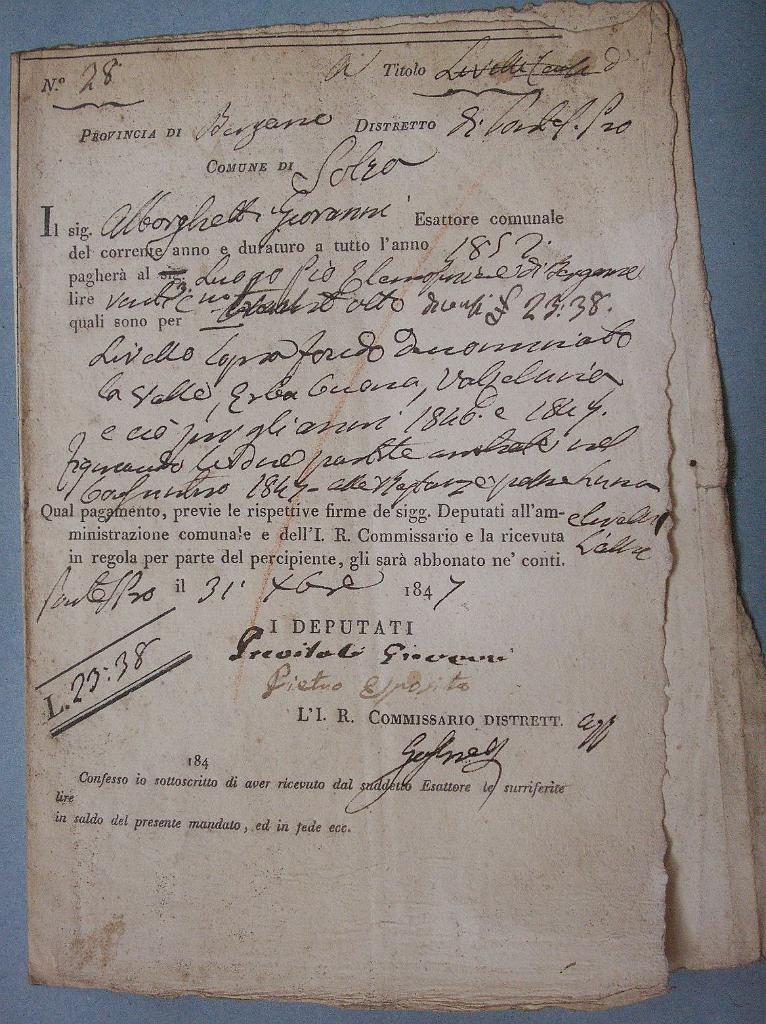 N.º 28 Titolo Livelli
PROVINCIA DI Bergamo DISTRETTO di Ponte S. Pro
COMUNE DI Solza
Il sig. Alborghetti Giovanni Esattore comunale
del corrente anno e duraturo a tutto l'anno 1852.
pagherà al sig. Luogo Pio Elemosiniere di Bergamo
lire venti trentotto £ 23:38.
quali sono per
Livello sopra fondo denominato
la Valle, Erba buona, Valzeluria
e ciò per gli anni 1846. e 1847.
figurando le due partite nel
Consuntivo 1847 alle
Qual pagamento, previe le rispettive firme de' sigg. Deputati all'am-
ministrazione comunale e dell'I. R. Commissario e la ricevuta
in regola per parte del percipiente, gli sarà abbonato ne' conti.
Ponte S. Pro il 31. Xbre 1847
I DEPUTATI
L. 23:38
Previtali Giovanni
Pietro Esposito
L'I. R. COMMISSARIO DISTRETT. agg
184
Confesso io sottoscritto di aver ricevuto dal suddetto Esattore le surriferite
lire
in saldo del presente mandato, ed in fede ecc.